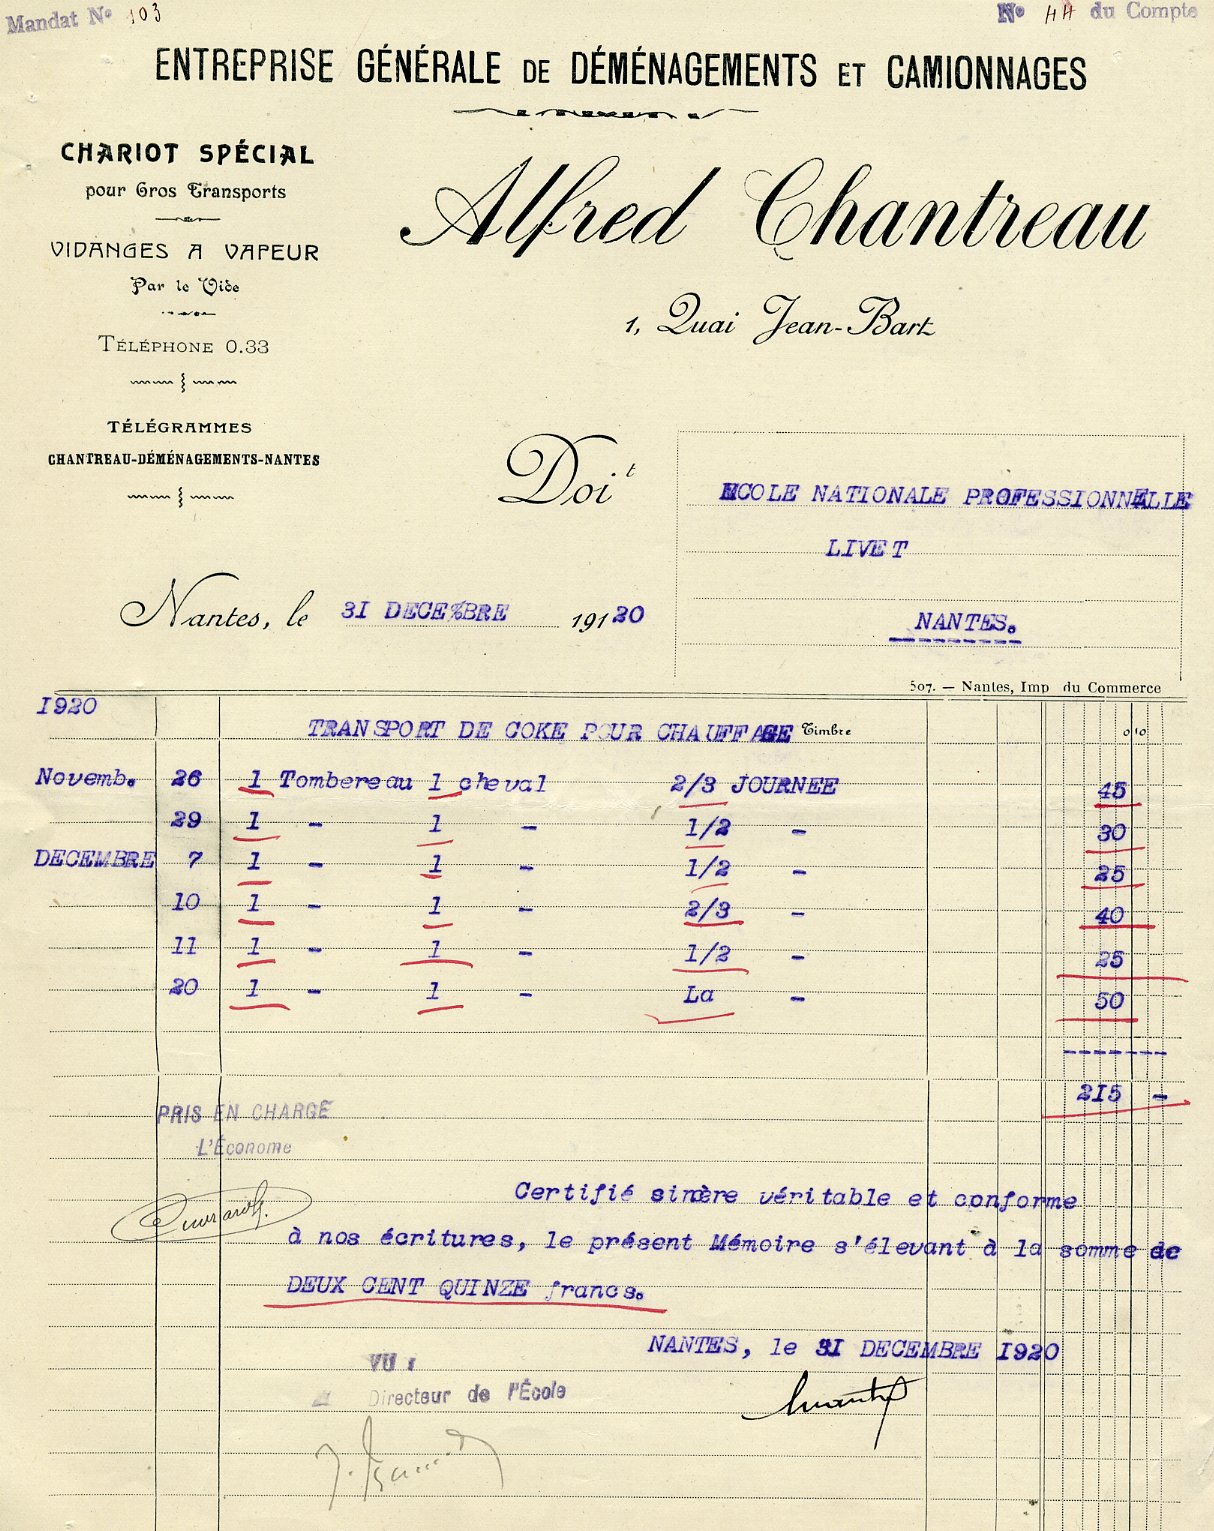 Mandat Nº 103
Nº 44 du Compte
ENTREPRISE GÉNÉRALE DE DÉMÉNAGEMENTS ET CAMIONNAGES
CHARIOT SPÉCIAL
pour Gros Transports
VIDANGES A VAPEUR
Par le Vide
TÉLÉPHONE 0.33
TÉLÉGRAMMES
CHANTREAU-DÉMÉNAGEMENTS-NANTES
Alfred Chantreau
1, Quai Jean-Bart
Doit
ECOLE NATIONALE PROFESSIONNELLE
LIVET
NANTES.
Nantes, le 31 DECEMBRE 19120
507. — Nantes, Imp du Commerce
1920
TRANSPORT DE COKE POUR CHAUFFAGE Timbre 0 10
Novemb. 26 1 Tombereau 1 cheval 2/3 JOURNEE 45
29 1 - 1 - 1/2 - 30
DECEMBRE 7 1 - 1 - 1/2 - 25
10 1 - 1 - 2/3 - 40
11 1 - 1 - 1/2 - 25
20 1 - 1 - La - 50
215 -
PRIS EN CHARGE
L'Économe
Certifié sincère véritable et conforme
à nos écritures, le présent Mémoire s'élevant à la somme de
DEUX CENT QUINZE francs.
NANTES, le 31 DECEMBRE 1920
VU :
Directeur de l'École